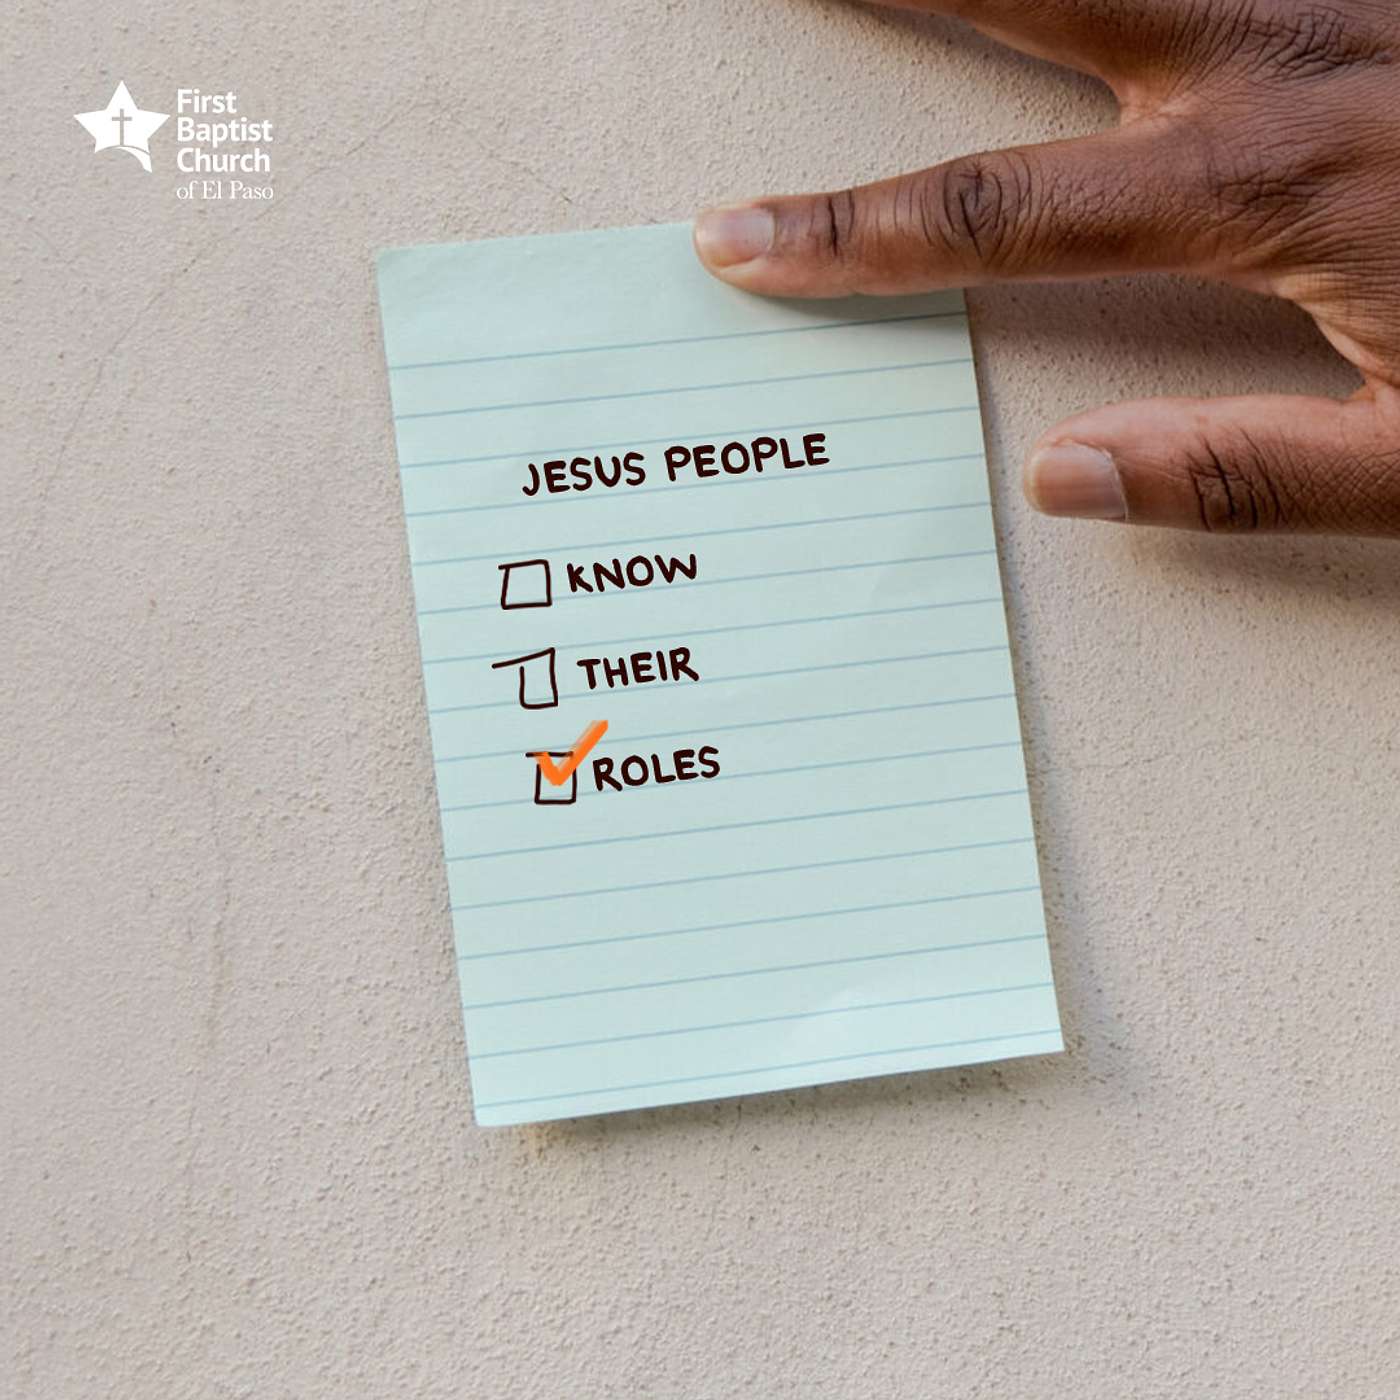 First
Baptist
Church
of El Paso
JESUS PEOPLE
KNOW
THEIR
ROLES